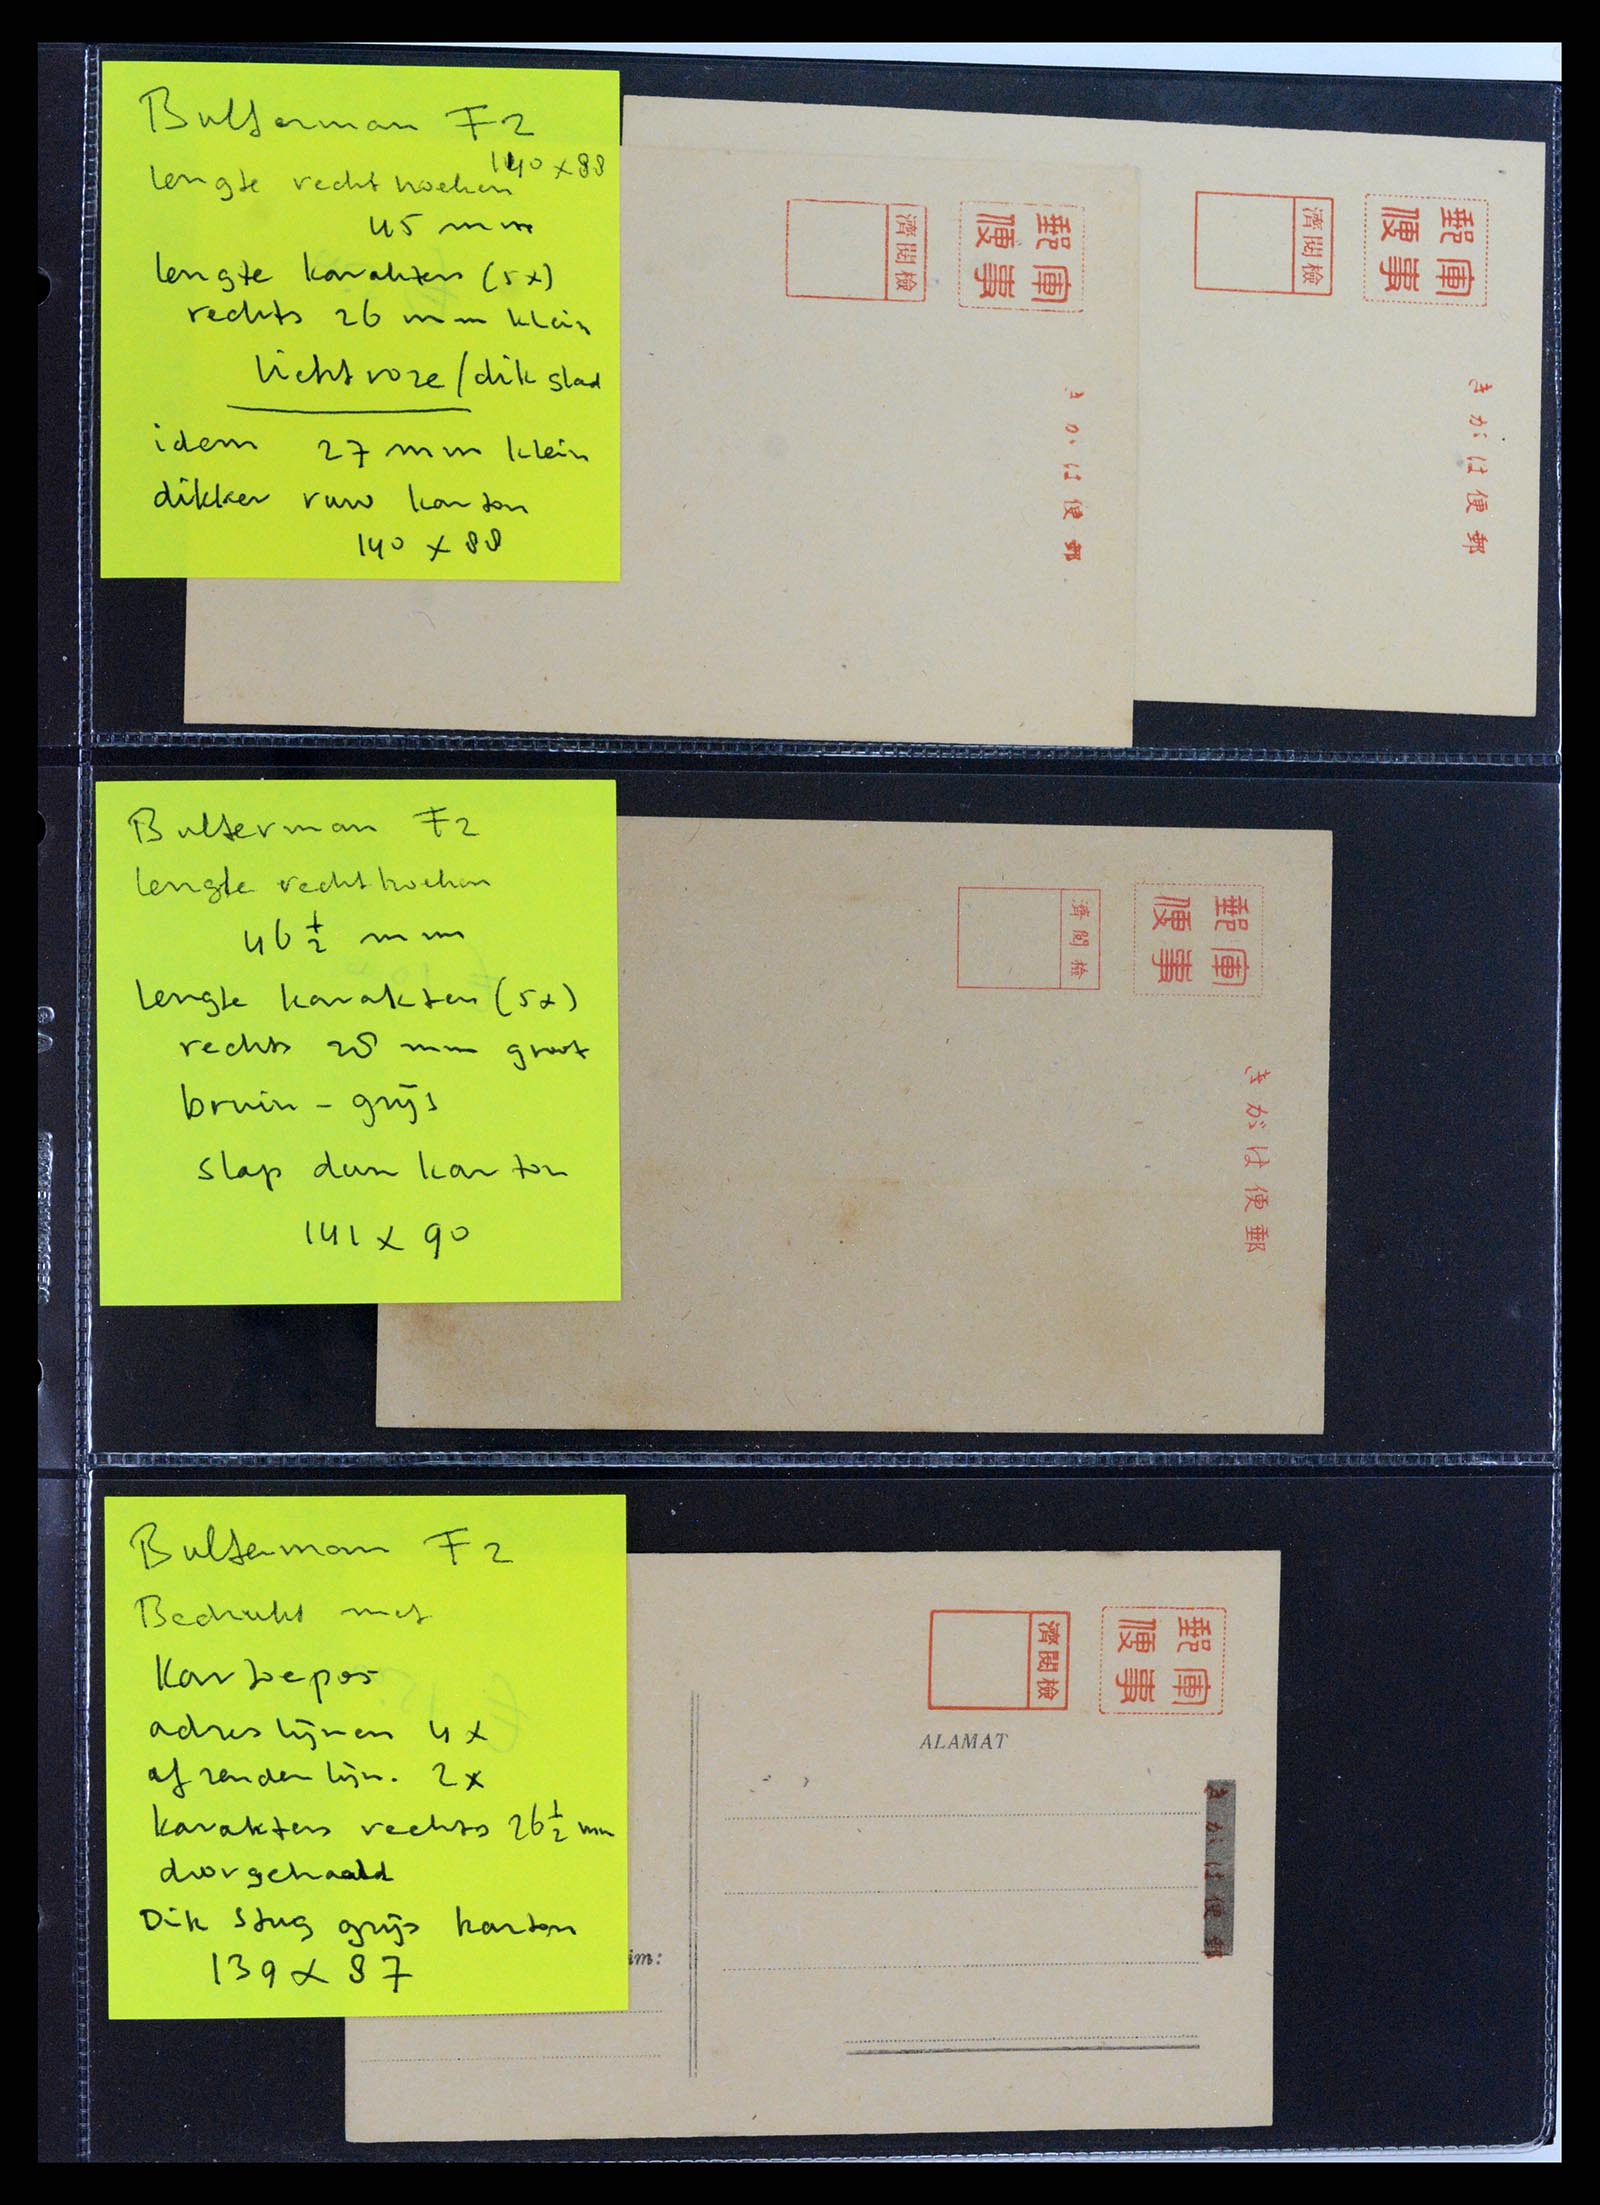 Bulterman F2
140 x 88
lengte rechthoeken
45 mm
lengte karakters (5x)
rechts 26 mm klein
lichtroze / dik glad
idem 27 mm klein
dikker ruw karton
140 x 88
軍事
郵便
檢閲濟
郵便はがき
軍事
郵便
檢閲濟
郵便はがき
Bulterman F2
lengte rechthoeken
46 1/2 mm
lengte karakters (5x)
rechts 28 mm groot
bruin - grijs
slap dun karton
141 x 90
軍事
郵便
檢閲濟
郵便はがき
Bulterman F2
Bedrukt met
Kartoepos
adreslijnen 4x
afzenderlijn. 2x
karakters rechts 26 1/2 mm
doorgehaald
Dik stug grijs karton
139 x 87
軍事
郵便
檢閲濟
ALAMAT
郵便はがき
im: